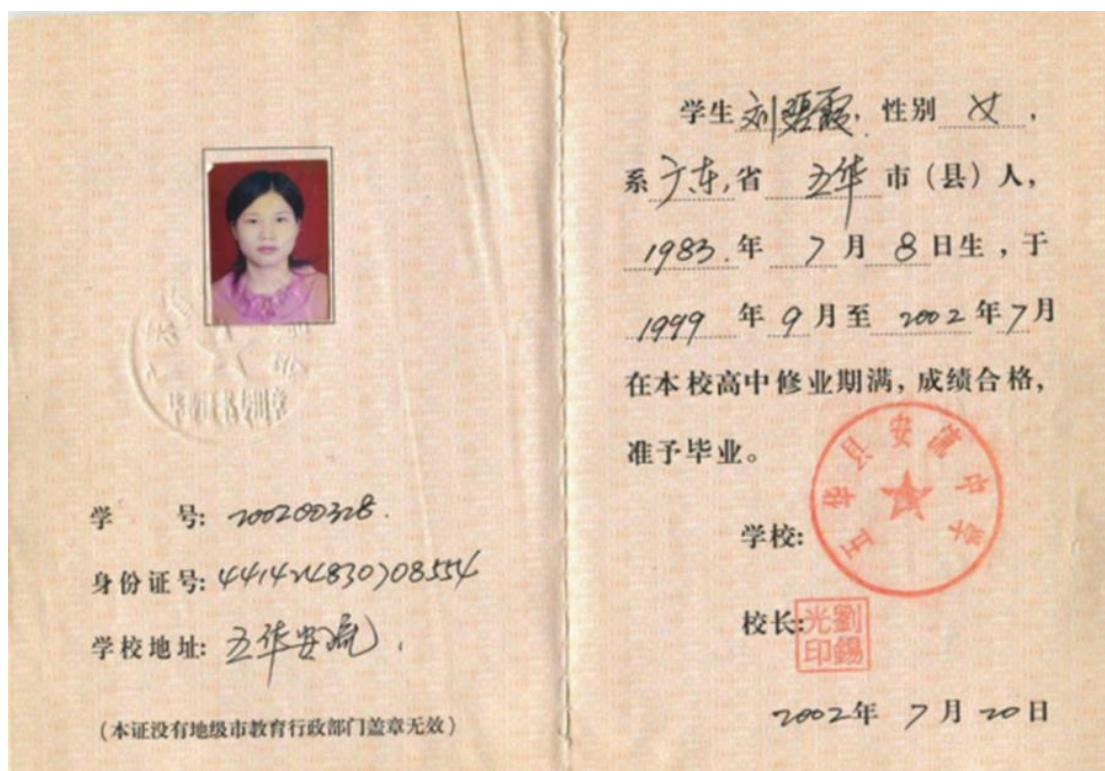 学　　号: 200200328.
身份证号: 441424830708554
学校地址: 五华安流
(本证没有地级市教育行政部门盖章无效)
学生 刘碧霞, 性别 女,
系 广东 省 五华 市(县)人,
1983 年 7 月 8 日生,于
1999 年 9 月至 2002 年 7 月
在本校高中修业期满,成绩合格,
准予毕业。
五华县安流中学
学校:
校长:
劉錫光印
2002年 7 月 20 日